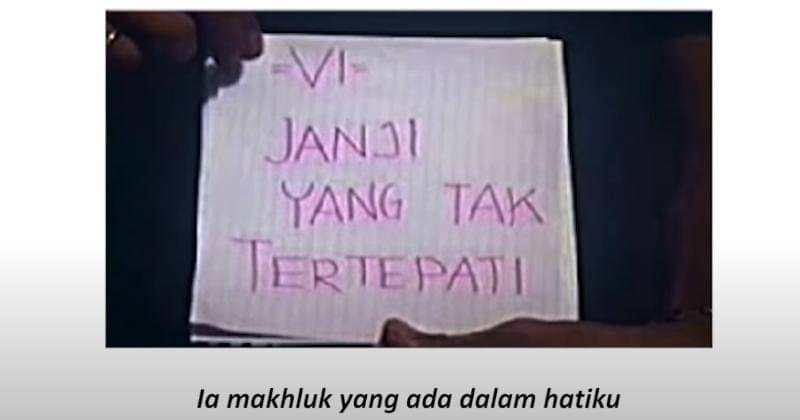 =VI=
JANJI
YANG TAK
TERTEPATI
Ia makhluk yang ada dalam hatiku